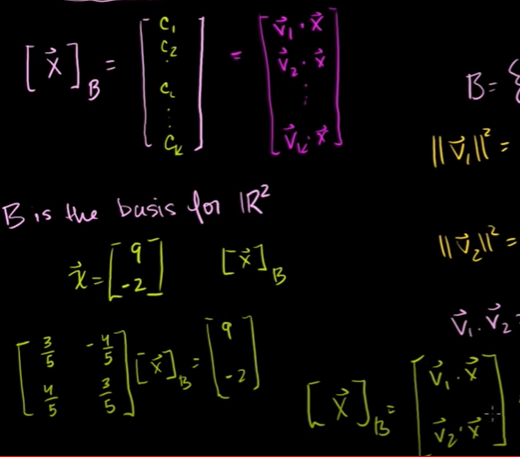 [x⃗]_B = [c₁ c₂ ⋮ cᵢ ⋮ c_k] = [v⃗₁ · x⃗ v⃗₂ · x⃗ ⋮ v⃗_k · x⃗]
B = {
||v⃗₁||² =
B is the basis for ℝ²
||v⃗₂||² =
x⃗ = [9 -2] [x⃗]_B
v⃗₁ · v⃗₂ =
[3/5 -4/5 4/5 3/5] [x⃗]_B = [9 -2]
[x⃗]_B = [v⃗₁ · x⃗ v⃗₂ · x⃗]